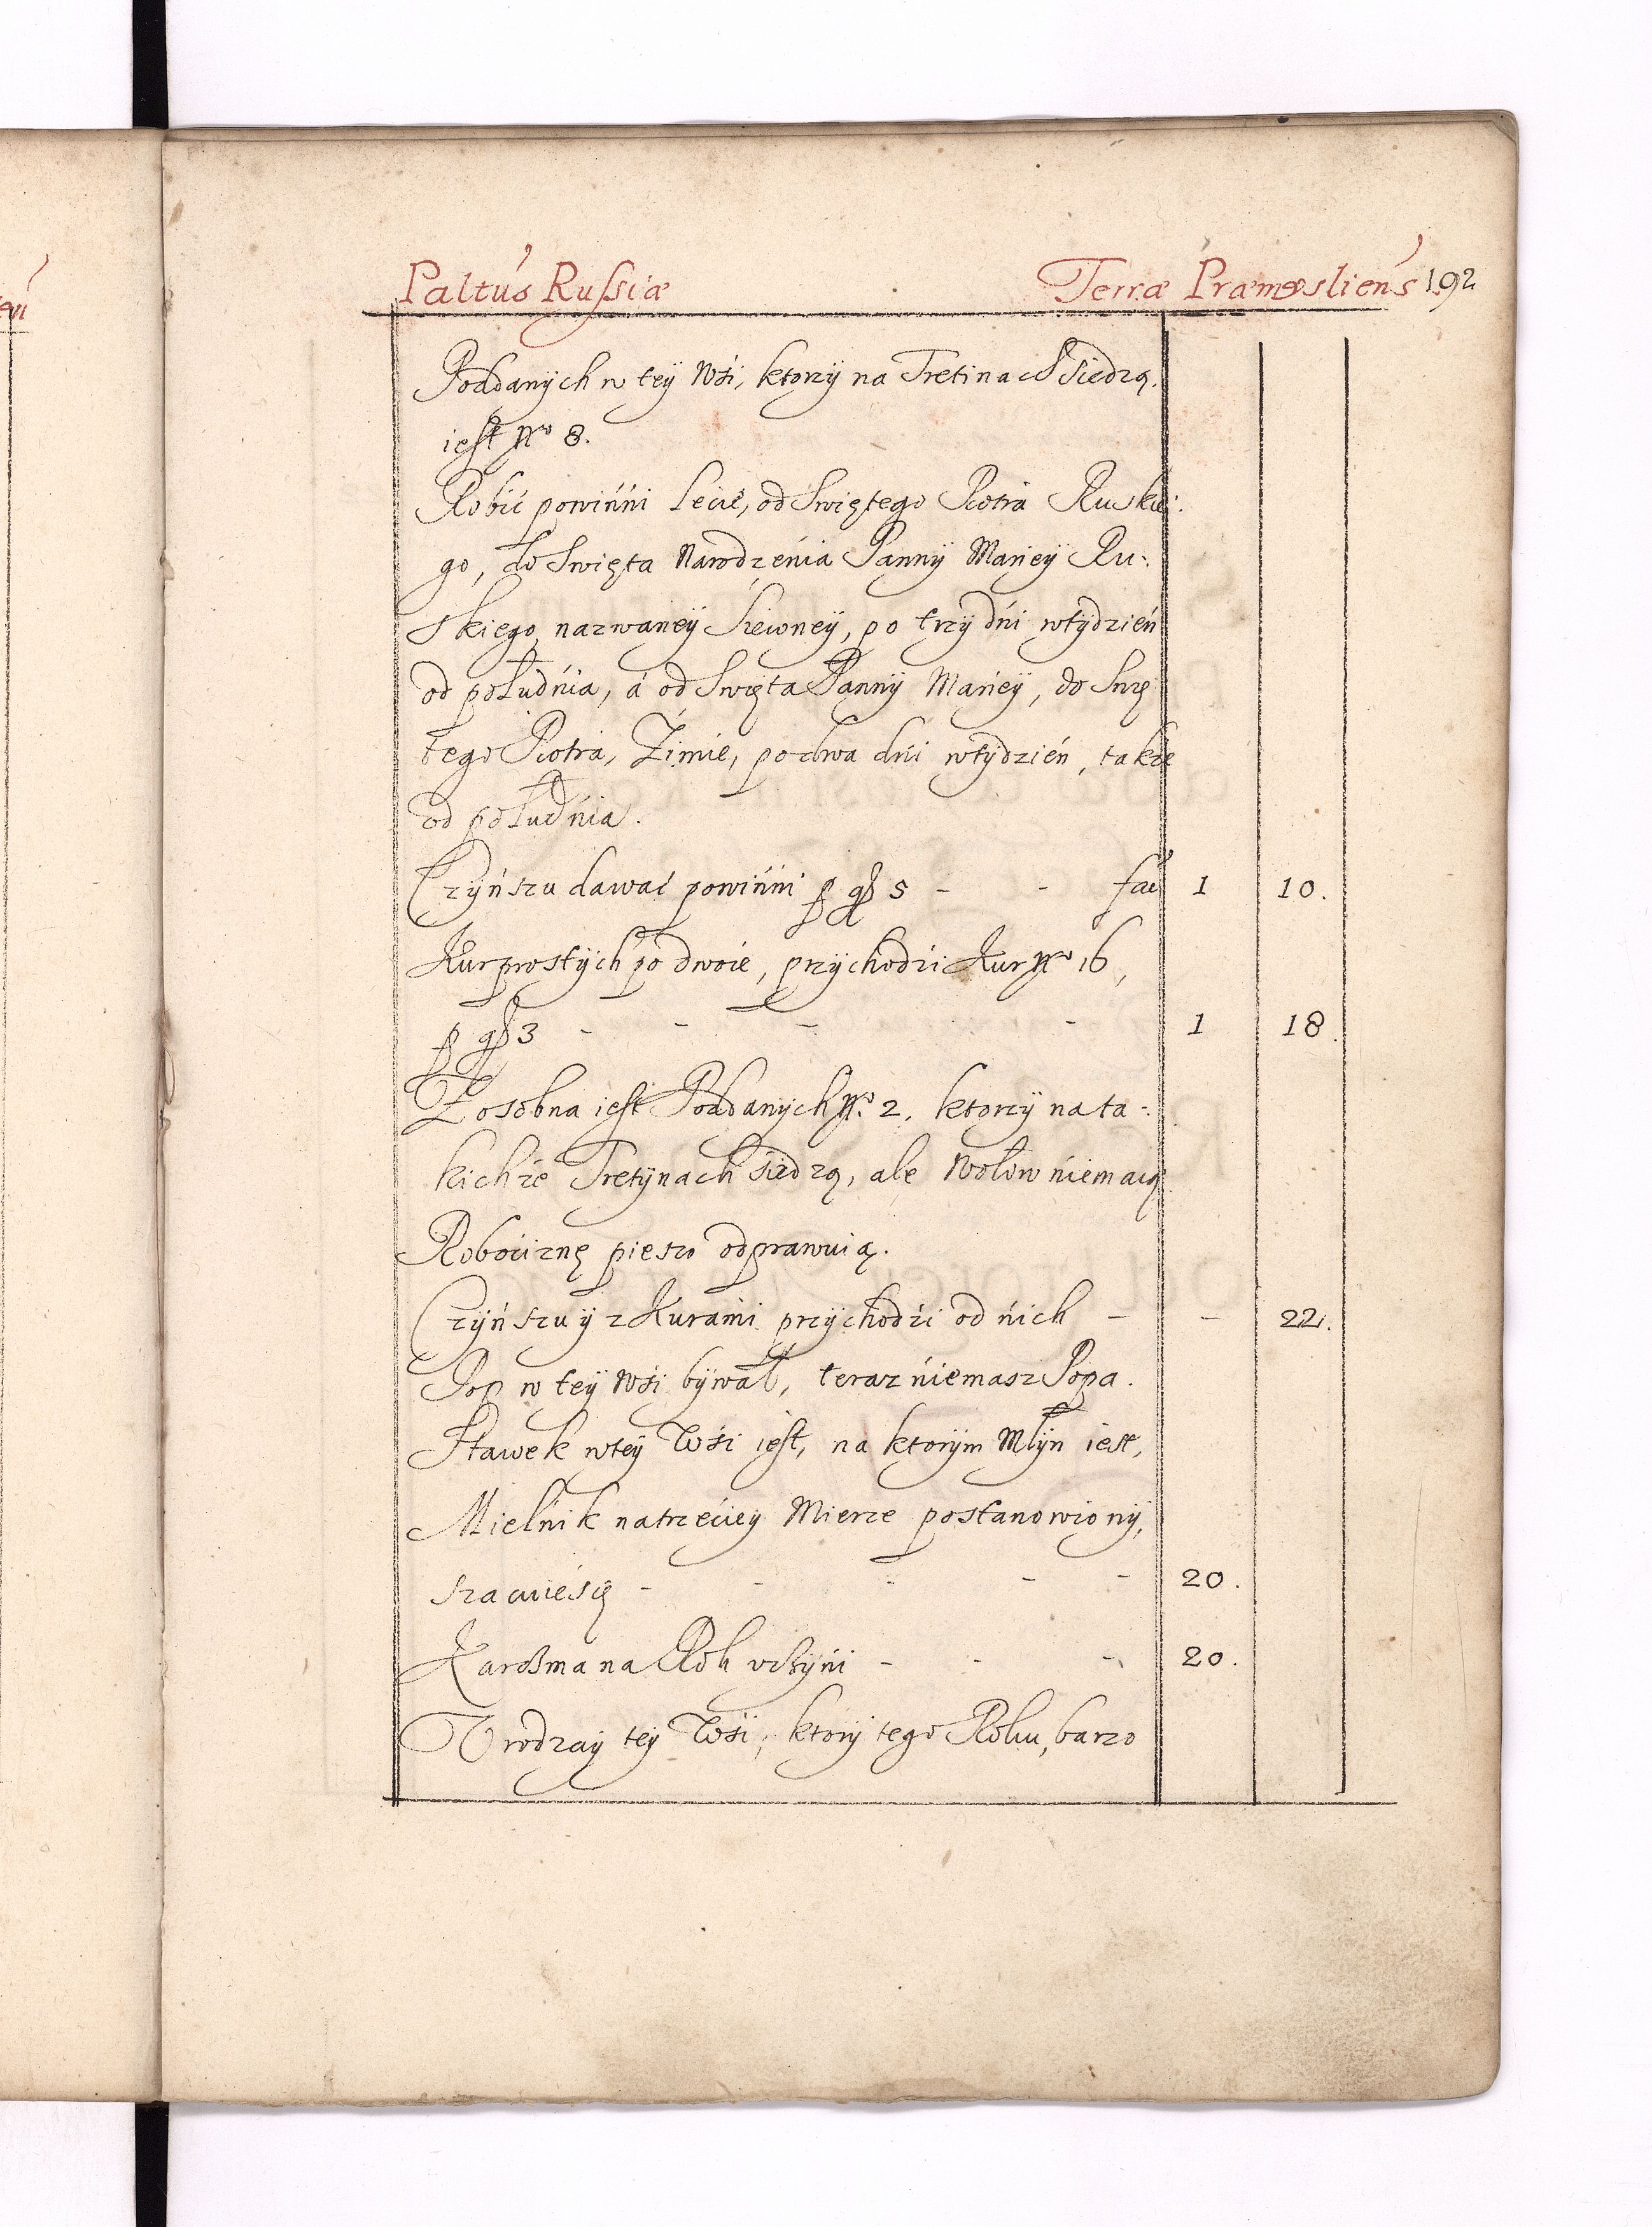 Paltus Russiæ Terræ Præmysliens 192
Poddanÿch w teÿ Wśi, ktorzÿ na Tretinach siedzą.
iest Nro 8.
Robić powinńi lecie, od Swiętego Piotra Ruskie:
go, do Swięta Narodzenia Pannÿ Marieÿ Ru:
skiego, nazwaneÿ Siewneÿ, po trzÿ dńi wtÿdzień
od południa, á od Swięta Pannÿ Marieÿ, do Swię
tego Piotra, Zimie, po dwa dńi wtÿdzień, także
od południa.
Czÿńszu dawać powinńi p gr 5 - - fać 1 10.
Kur prostÿch po dwoie, przÿchodzi Kur Nro 16,
p gr 3 - - - - 1 18.
Z osobna iest Poddanÿch Nro. 2, ktorzÿ na ta:
kichże Tretÿnach siedzą, ale Wołow niemaią
Robociznę pieszo odprawuią.
Czÿńszu ÿ z Kurami przÿchodźi od ńich - - 22.
Pop w teÿ Wśi bÿwał, teraz niemasz Popa.
Stawek wteÿ Wśi iest, na ktorÿm Młÿn iest,
Mielńik natrzećieÿ Mierze postanowionÿ,
szacuie się - - - - - 20.
Karczma na Rok vczÿńi - - - 20.
Vrodzaÿ teÿ Wśi, ktorÿ tego Roku, barzo